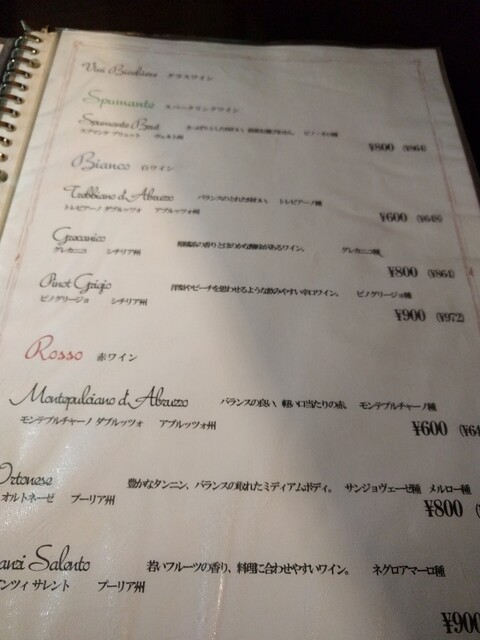 Vini Bicchiere グラスワイン
Spumante スパークリングワイン
Spumante Brut
スプマンテ ブリュット ヴェネト州
¥800 (¥864)
Bianco 白ワイン
Trebbiano d'Abruzzo バランスのとれた トレビアーノ種
トレビアーノ ダブルッツォ アブルッツォ州
¥600 (¥648)
Grecanico 柑橘系の香りとほのかな酸味があるワイン。 グレカニコ種
グレカニコ シチリア州
¥800 (¥864)
Pinot Grigio 洋梨やピーチを思わせるような飲みやすい辛口ワイン。 ピノグリージョ種
ピノグリージョ シチリア州
¥900 (¥972)
Rosso 赤ワイン
Montepulciano d'Abruzzo バランスの良い、軽い口当たりの赤。 モンテプルチャーノ種
モンテプルチャーノ ダブルッツォ アブルッツォ州
¥600 (¥64
Ortonese 豊かなタンニン、バランスの取れたミディアムボディ。 サンジョヴェーゼ種 メルロー種
オルトネーゼ プーリア州
¥800
anzi Salento 若いフルーツの香り、料理に合わせやすいワイン。 ネグロアマーロ種
ンツィ サレント プーリア州
¥900